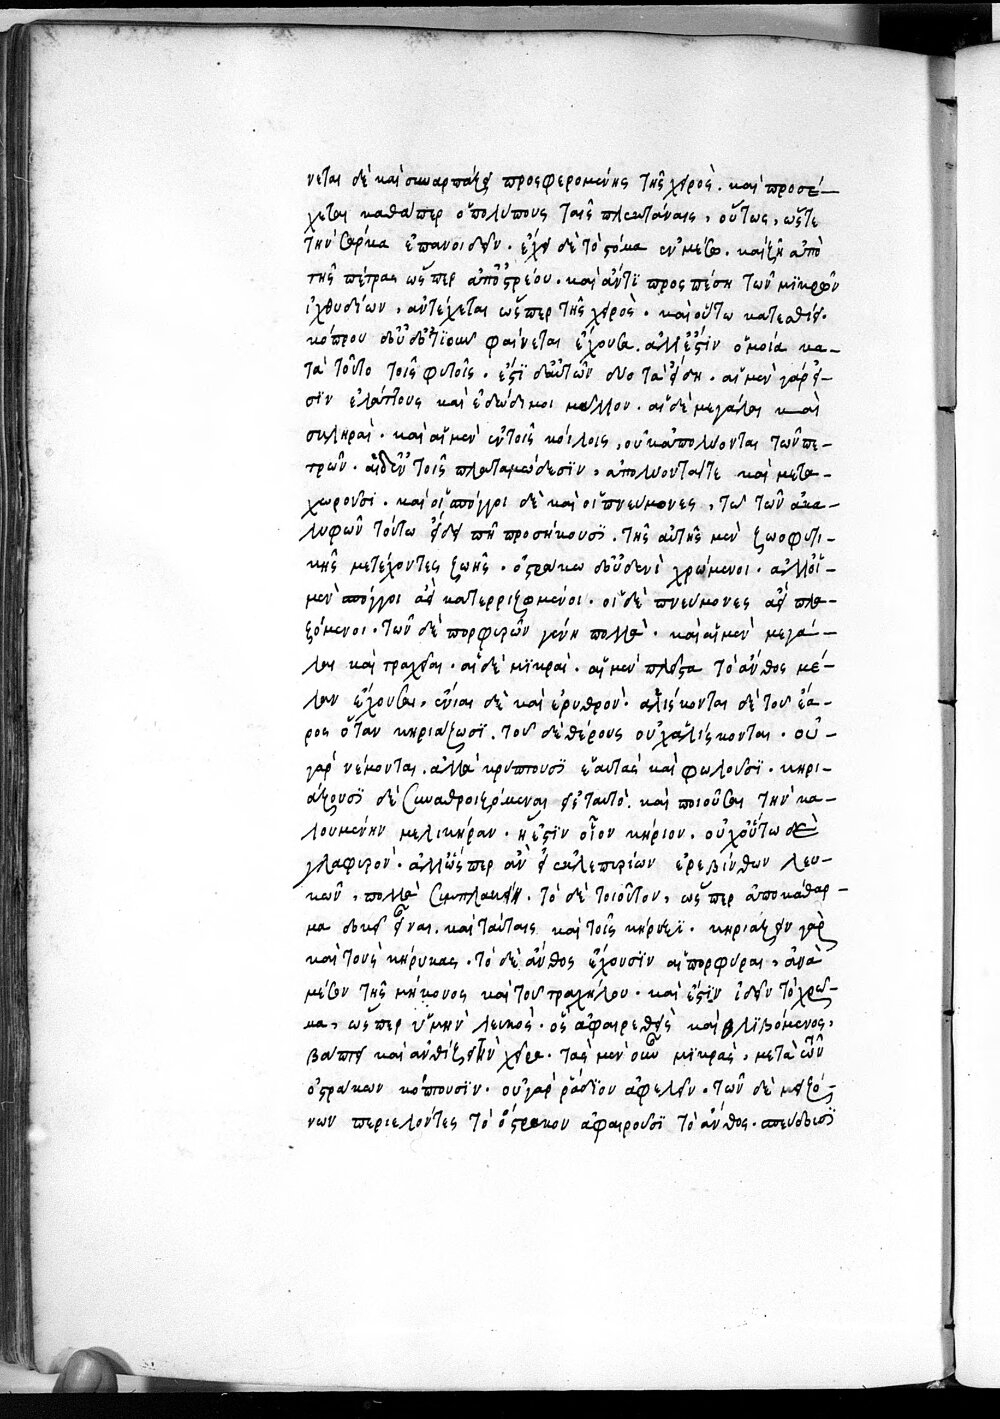 νεται δὲ καὶ συναρπάζει προσφερομένης τῆς χειρὸς. καὶ προσέ-
χεται καθάπερ ὁ πολύπους ταῖς πλεκτάναις, οὕτως, ὥστε
τὴν σάρκα ἐπανοιδεῖν. ἔχει δὲ τὸ στόμα ἐν μέσῳ. καὶ ζῆ ἀπὸ
τῆς πέτρας ὥσπερ ἀπὸ ὀστρέου. καὶ ἄντι προσπέση τῶν μϊκρῶν
ἰχθυδίων, ἀντέχεται ὥσπερ τῆς χειρὸς. καὶ οὕτω κατεσθίει.
κόπρον δ' οὐδοτϊοῦν φαίνεται ἔχουσα. ἀλλ' ἐστὶν ὁμοία κα-
τὰ τοῦτο τοῖς φυτοῖς. ἐστϊ δ' αὐτῶν δύο τὰ εἴδη. αἱ μὲν γάρ εἰ-
σϊν ἐλάττους καὶ ἐδώδιμοι μᾶλλον. αἱ δὲ μεγάλαι καὶ
σκληραὶ. καὶ αἱ μὲν ἐν τοῖς κοίλοις, οὐκ ἀπολύονται τῶν πε-
τρῶν. αἱ δ' ἐν τοῖς πλαταμώδεσϊν, ἀπολύονταί τε καὶ μετα-
χωροῦσι. καὶ οἱ σπόγγοι δὲ καὶ οἱ πνεύμονες, τῶ τῶν ἀκα-
λυφῶν τούτω εἴδει πῆ προσήκουσϊ. τῆς αὐτῆς μὲν ζωοφυτι-
κῆς μετέχοντες ζωῆς. ὀστράκω δ' οὐδενὶ χρώμενοι. ἀλλ' οἱ
μὲν σπόγγοι ἀεὶ κατερριζωμένοι. οἱ δὲ πνεύμονες ἀεὶ πλα-
ζόμενοι. τῶν δὲ πορφυρῶν γένη πολλὰ. καὶ αἱ μὲν μεγά-
λαι καὶ τραχεῖαι. αἱ δὲ μϊκραὶ. αἱ μὲν πλεῖσται τὸ ἄνθος μέ-
λαν ἔχουσαι, ἔνιαι δὲ καὶ ἐρυθρὸν. ἁλίσκονται δὲ τοῦ ἔα-
ρος ὅταν κηριάζωσϊ. τοῦ δὲ θέρους οὐχ ἁλίσκονται. οὐ
γὰρ νέμονται. ἀλλὰ κρύπτουσϊ ἑαυτὰς καὶ φωλοῦσϊ. κηρι-
άζουσϊ δὲ συναθροιζόμεναι εἰς ταυτὸ. καὶ ποιοῦσαι τὴν κα-
λουμένην μελικήραν. ἥ ἐστϊν οἷον κήριον. οὐχ οὕτω δὲ
γλαφυρὸν. ἀλλ' ὥσπερ ἂν εἰ ἐκ λεπυρίων ἐρεβίνθων λευ-
κῶν, πολλὰ συμπλακείη. τὸ δὲ τοιοῦτον, ὥσπερ ἀποκάθαρ-
μα δοκεῖ εἶναι. καὶ ταύταις καὶ τοῖς κήρυξϊ. κηριάζειν γὰρ
καὶ τοὺς κήρυκας. τὸ δὲ ἄνθος ἔχουσϊν αἱ πορφύραι, ἀνὰ
μέσον τῆς μήκωνος καὶ τοῦ τραχήλου. καὶ ἐστϊν ἰδεῖν τὸ χρῶ-
μα, ὥσπερ ὑμὴν λευκὸς. ὃς ἀφαιρεθεὶς καὶ θλϊβόμενος,
βάπτει καὶ ἀνθίζει τὴν χεῖρα. τὰς μὲν οὖν μϊκρὰς, μετὰ τῶν
ὀστράκων κόπτουσϊν. οὐ γὰρ ῥάδϊον ἀφελεῖν. τῶν δὲ μειζό-
νων περιελόντες τὸ ὄστρακον ἀφαιροῦσϊ τὸ ἄνθος. σπεύδουσϊ